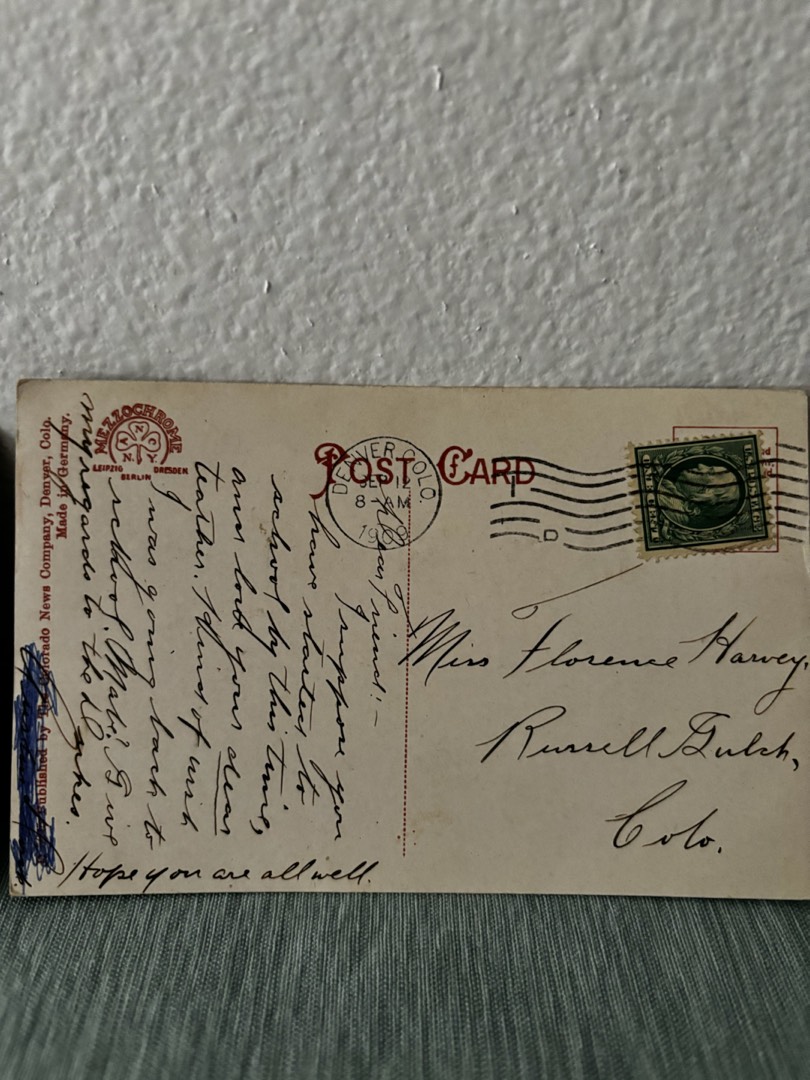 POST CARD
MEZZOCHROME
A N C
N.Y.
LEIPZIG DRESDEN
BERLIN
Published by The Colorado News Company, Denver, Colo.
Made in Germany.
DENVER, COLO.
8 AM
D
Dear Friend:-
I suppose you
have started to
school by this time,
and love your dear
teacher. Kind of wish
I was going back to
school, Give
my regards to the
Hope you are all well.
Miss Florence Harvey,
Russell Gulch,
Colo.